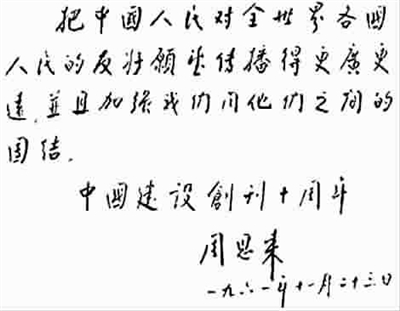 把中國人民对全世界各國
人民的友好願望传播得更廣更
遠,並且加强我们同他们之间的
团结.
中國建设創刊十周年
周恩来
一九六一年十一月二十三日